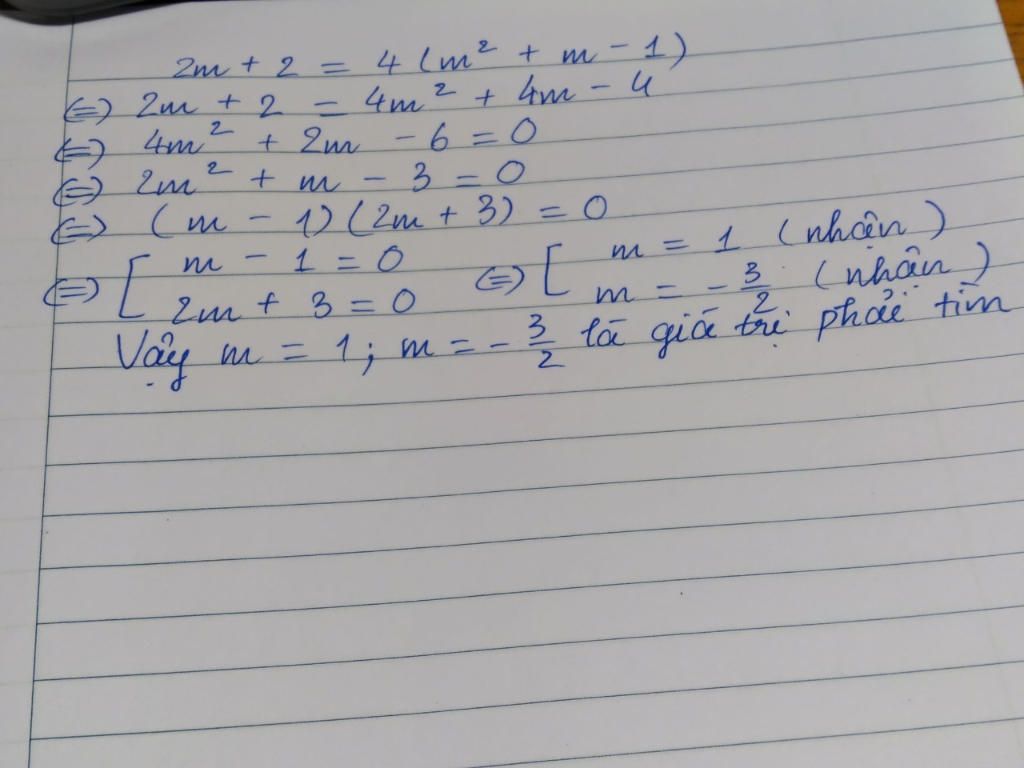 2m + 2 = 4 (m² + m - 1)
⇔ 2m + 2 = 4m² + 4m - 4
⇔ 4m² + 2m - 6 = 0
⇔ 2m² + m - 3 = 0
⇔ (m - 1)(2m + 3) = 0
⇔ [ m - 1 = 0 ⇔ [ m = 1 (nhận)
2m + 3 = 0 m = - 3/2 (nhận)
Vậy m = 1 ; m = - 3/2 là giá trị phải tìm